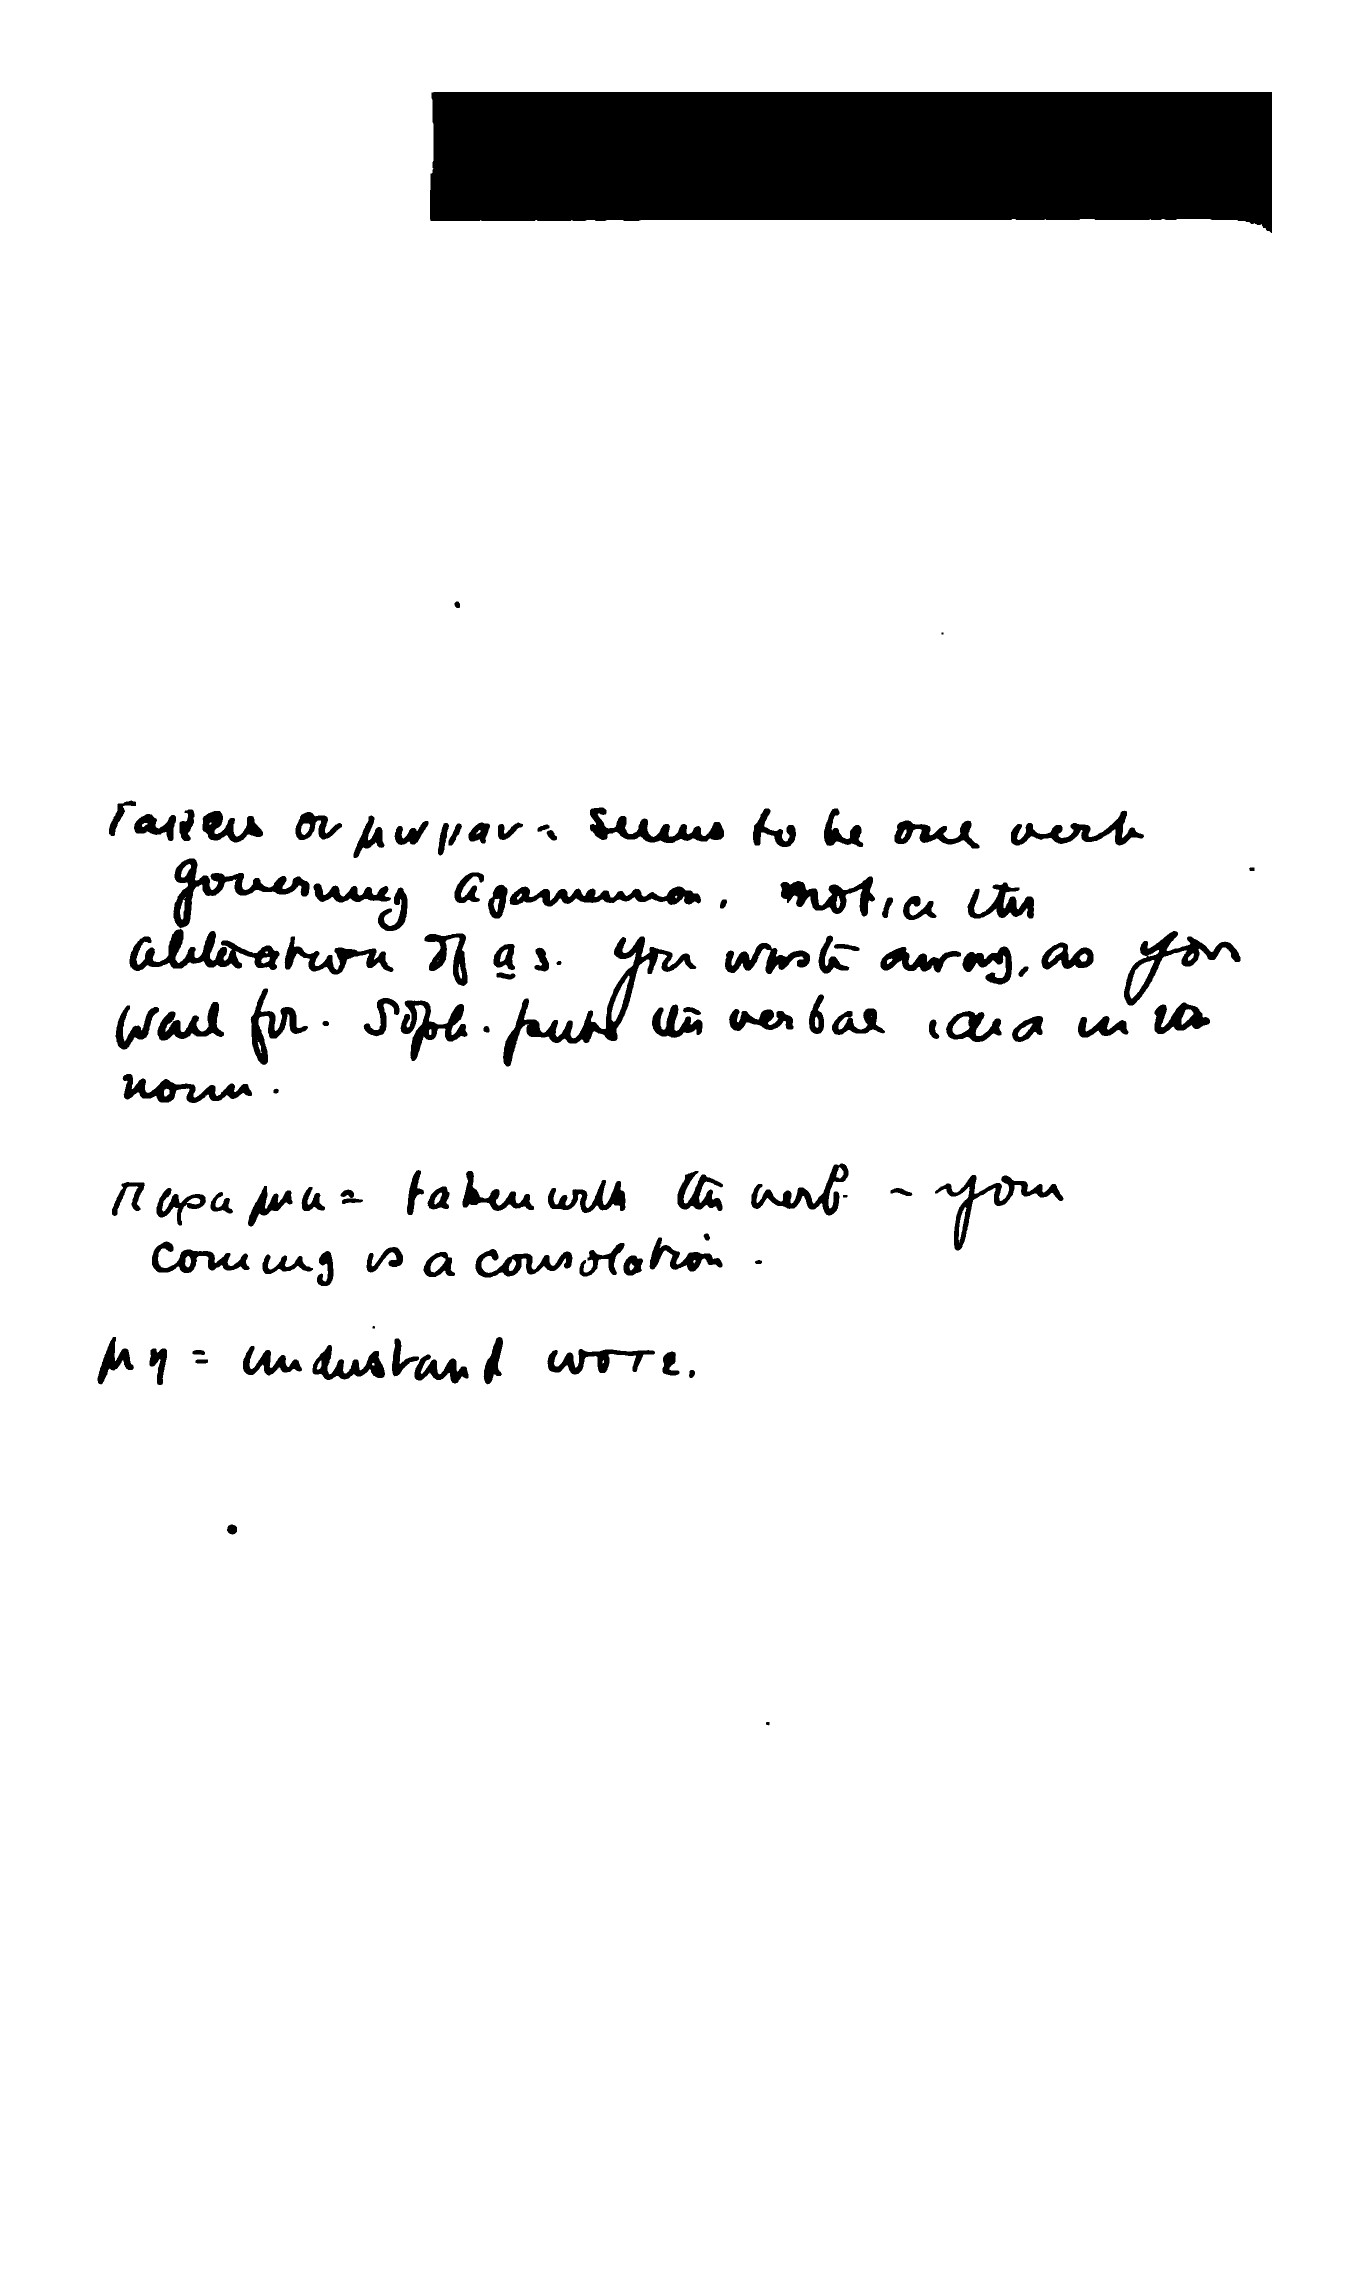 οιμωγαν = seems to be one verb
governing Agamemnon. Notice the
alliteration of as. You waste away, as you
wail for. Soph. puts the verbal idea in the
noun.
παραμυ = taken with the verb - your
coming is a consolation.
μη = understand ωστε.